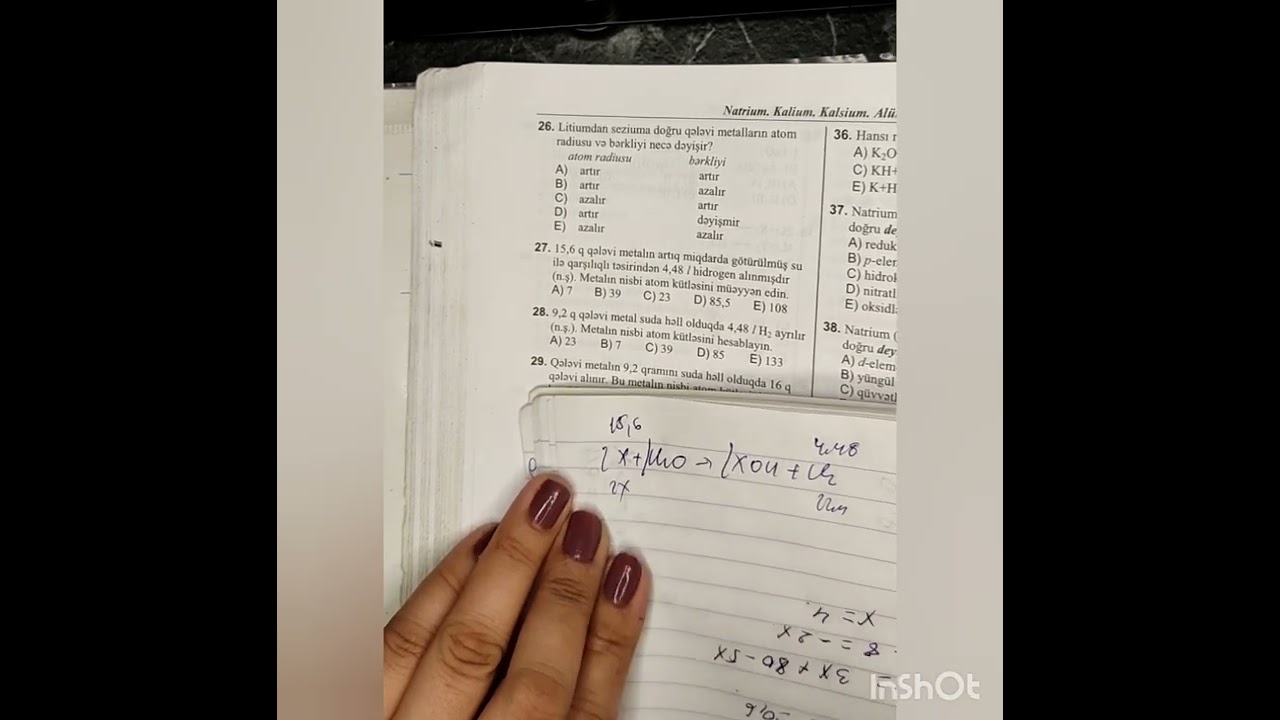 Natrium. Kalium. Kalsium. Alü
26. Litiumdan seziuma doğru qələvi metalların atom
radiusu və bərkliyi necə dəyişir?
atom radiusu bərkliyi
A) artır artır
B) artır azalır
C) azalır artır
D) artır dəyişmir
E) azalır azalır
27. 15,6 q qələvi metalın artıq miqdarda götürülmüş su
ilə qarşılıqlı təsirindən 4,48 l hidrogen alınmışdır
(n.ş). Metalın nisbi atom kütləsini müəyyən edin.
A) 7 B) 39 C) 23 D) 85,5 E) 108
28. 9,2 q qələvi metal suda həll olduqda 4,48 l H₂ ayrılır
(n.ş.). Metalın nisbi atom kütləsini hesablayın.
A) 23 B) 7 C) 39 D) 85 E) 133
29. Qələvi metalın 9,2 qramını suda həll olduqda 16 q
qələvi alınır. Bu metalın nisbi atom
36. Hansı
A) K₂O
C) KH+
E) K+H
37. Natrium
doğru de
A) reduk
B) p-eler
C) hidrok
D) nitratl
E) oksidl
38. Natrium (
doğru dey
A) d-elem
B) yüngül
C) qüvvətl
15,6 4,48
2X+ H₂O → 2XOH + H₂
2X
x = 4
8 = -2x
3x + 80 - 5x
-0,6
InShOt